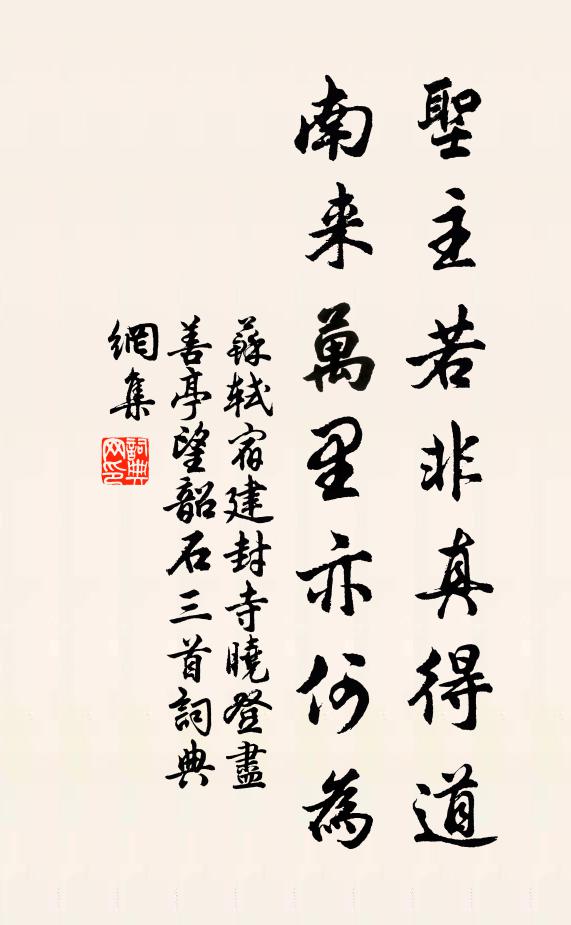 聖主若非真得道
南来萬里亦何為
蘇軾宿建封寺曉登盡
善亭望韶石三首詞典
網集
詞典
网印